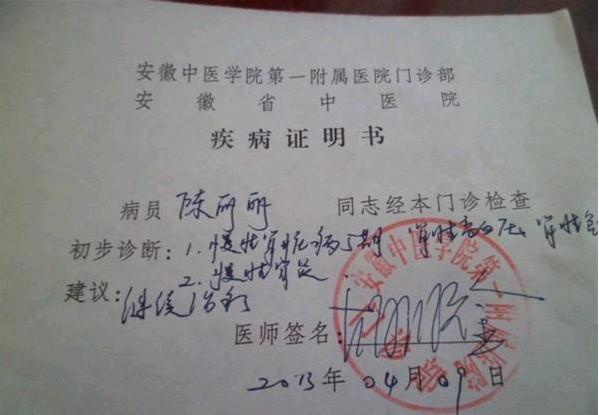 安徽中医学院第一附属医院门诊部
安徽省中医院
疾病证明书
病员 陈丽丽 同志经本门诊检查
初步诊断：1.慢性肾脏病5期 肾性高血压 肾性
2.慢性肾炎
建议：继续治疗
医师签名：
2013年04月09日
安徽中医学院第一附属医院